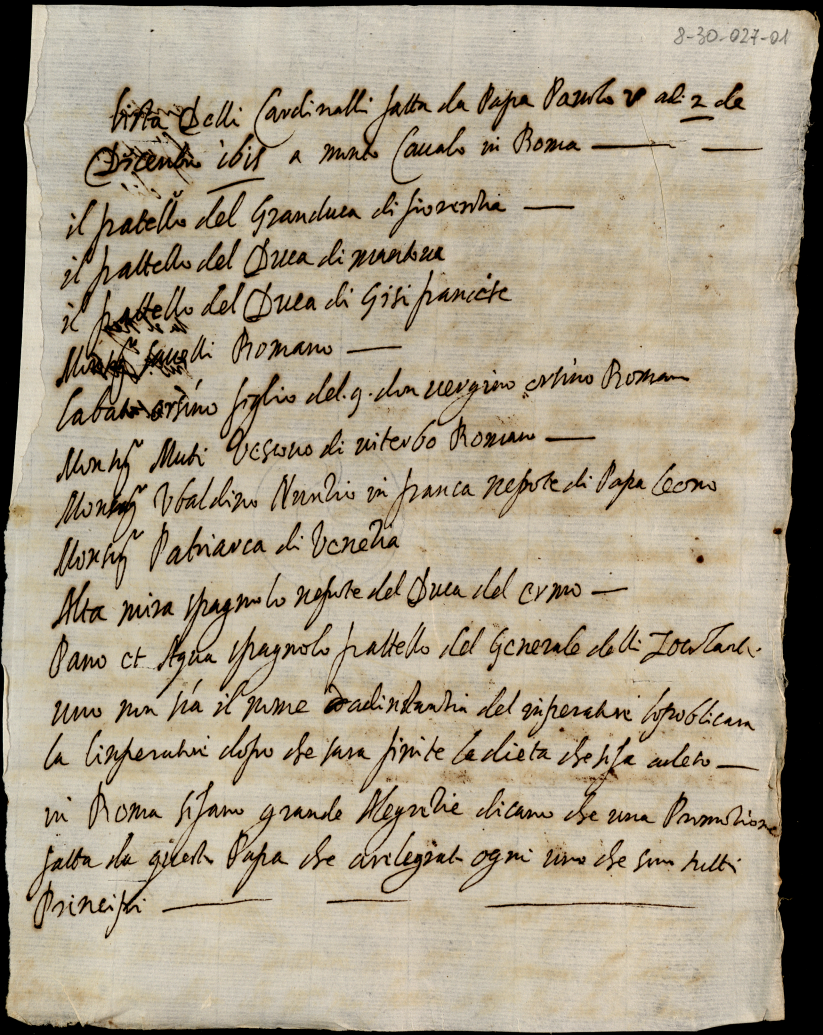 8-30-027-01
lista Delli Cardinalli fatta da Papa Pauolo V adi 2 de
Dicenbre 1615 a monte Cauallo in Roma
il fratello del Granduca di fiorentia
il frattello del Duca di mantoua
il frattello del Duca di Gisi francese
Monsigr Sauelli Romano
labate orsino figlio del. q. don uergino orsino Romano
Monsigr Muti Vescouo di uiterbo Romano
Monsigr Vbaldino Nuntio in franca nepote di Papa leono
Monsigr Patriarca di Venetia
Alta mira spagnolo nepote del Duca del ermo
Pano et Aqua spagnolo frattello del Generale delli
uno non si sa il nome adinstantia del inperatore
la linperatore dopo che sara finite la dieta che si fa adeso
in Roma si fano grande Alegretie dicano che una Promotione
fatta da questo Papa che a ralegrato ogni uno che sono tutti
Principi